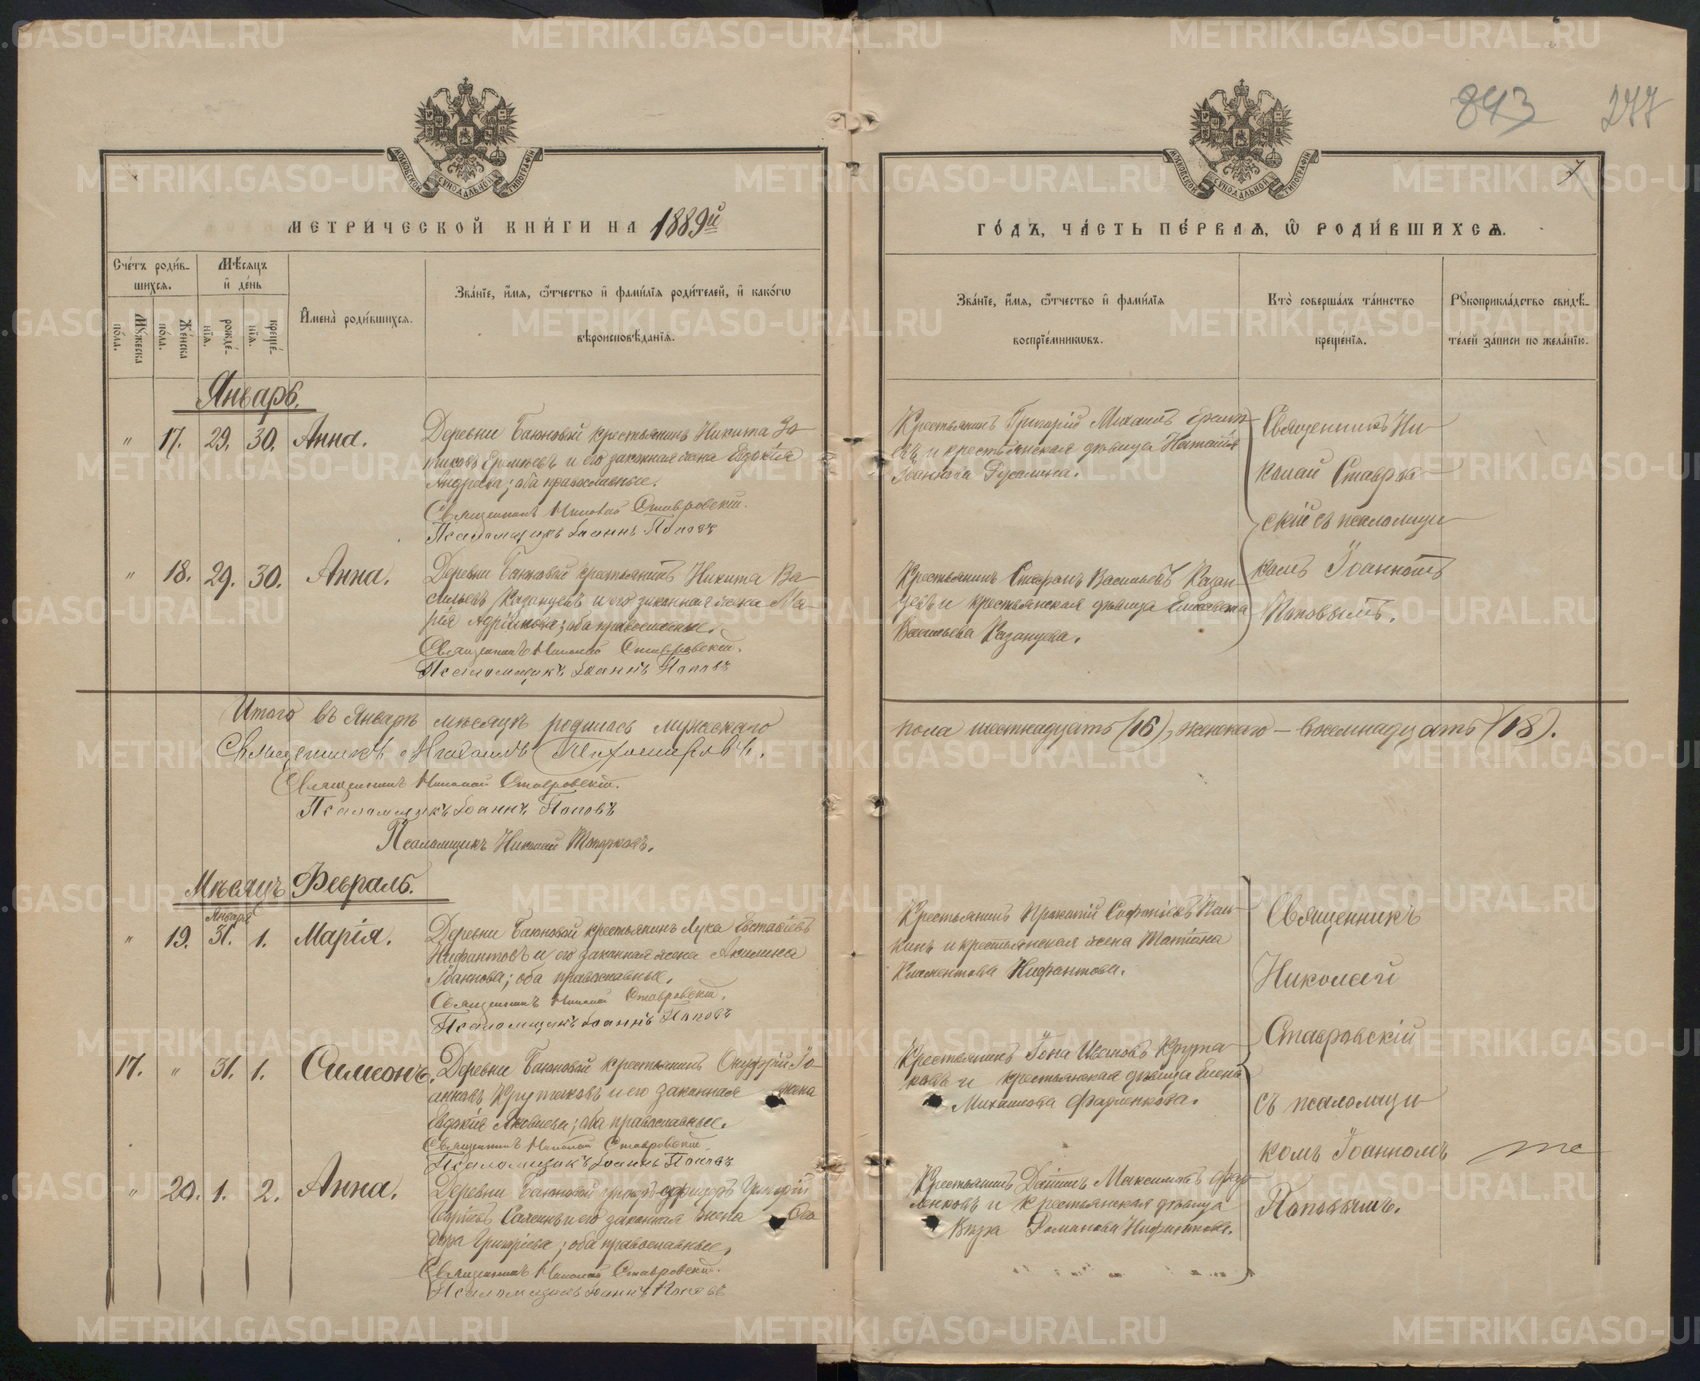 843 277
МОСКОВСКОЙ СУНОДАЛЬНОЙ ТИПОГРАФІИ
МОСКОВСКОЙ СУНОДАЛЬНОЙ ТИПОГРАФІИ
МЕТРИЧЕСКОЙ КНИГИ НА 1889й
ГОДЪ, ЧАСТЬ ПЕРВАЯ, Ѡ РОДИВШИХСЯ.
Счетъ родив-
шихся.
Мужеска пола.
Женска пола.
Мѣсяцъ
и день
рожде-
нія.
креще-
нія.
Имена родившихся.
Званіе, имя, отчество и фамилія родителей, и какогѡ
вѣроисповѣданія.
Званіе, имя, отчество и фамилія
воспріемникѡвъ.
Кто совершалъ таинство
крещенія.
Рукоприкладство свидѣ-
телей записи по желанію.
Январь.
" 17. 29. 30. Анна.
Деревни Баиновой крестьянинъ Никита
и его законная жена Евдокія
Андреева; оба православные.
Священникъ Николай Ставровскій.
Псаломщикъ Іоаннъ Поповъ
Крестьянинъ Григорій Михаиловъ
и крестьянская дѣвица Наталія
Іоаннова
Священникъ Ни-
колай Ставров-
скій съ псаломщи-
комъ Іоанномъ
Поповымъ.
" 18. 29. 30. Анна.
Деревни Баиновой крестьянинъ Никита Ва-
сильевъ Казанцевъ и его законная жена Ма-
рія оба православные.
Священникъ Николай Ставровскій.
Псаломщикъ Іоаннъ Поповъ
Крестьянинъ Стефанъ Васильевъ Казан-
цевъ и крестьянская дѣвица Елисавета
Васильева Казанцева.
Итого въ Январѣ мѣсяцѣ родилось мужескаго
пола шестнадцать (16), женскаго – восемнадцать (18).
Священникъ Тихомировъ.
Священникъ Николай Ставровскій.
Псаломщикъ Іоаннъ Поповъ
Псаломщикъ Николай Топорковъ.
Мѣсяцъ Февраль.
Января
" 19. 31. 1. Марія.
Деревни Баиновой крестьянинъ Лука Евстафіевъ
Нифантовъ и его законная жена Акилина
Іоаннова; оба православные.
Священникъ Николай Ставровскій.
Псаломщикъ Іоаннъ Поповъ
Крестьянинъ Прокопій
и крестьянская жена Татіана
Климентова Нифантова.
Священникъ
Николай
Ставровскій
съ псаломщи-
комъ Іоанномъ
Поповымъ.
17. " 31. 1. Симеонъ.
Деревни Баиновой крестьянинъ Онуфрій Іо-
анновъ Крутаковъ и его законная жена
Евдокія Яковлева; оба православные.
Священникъ Николай Ставровскій
Псаломщикъ Іоаннъ Поповъ
Крестьянинъ Іона Ивановъ Крута-
ковъ и крестьянская дѣвица Елена
Михаилова
" 20. 1. 2. Анна.
Деревни Баиновой Григорій
и его законная жена Ѳео-
дора Григоріева; оба православные.
Священникъ Николай Ставровскій.
Псаломщикъ Іоаннъ Поповъ
Крестьянинъ Даніилъ Максимовъ
и крестьянская дѣвица
Вѣра Романова Нифантова.
METRIKI.GASO-URAL.RU